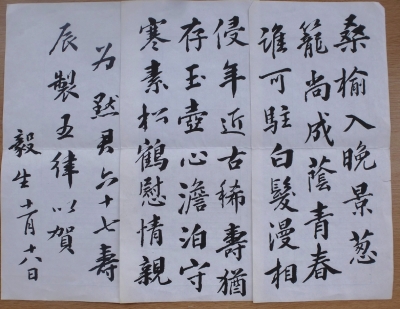 桑榆入晚景葱
籠尚成蔭青春
谁可駐白髮漫相
侵年近古稀壽猶
存玉壺心澹泊守
寒素松鶴慰情親
为默君六十七壽
辰製五律以賀
毅生十一月十八日